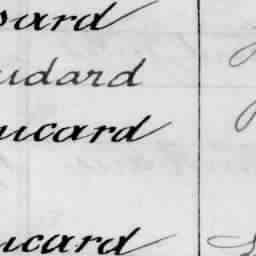 ard
udard
ucard
ucard